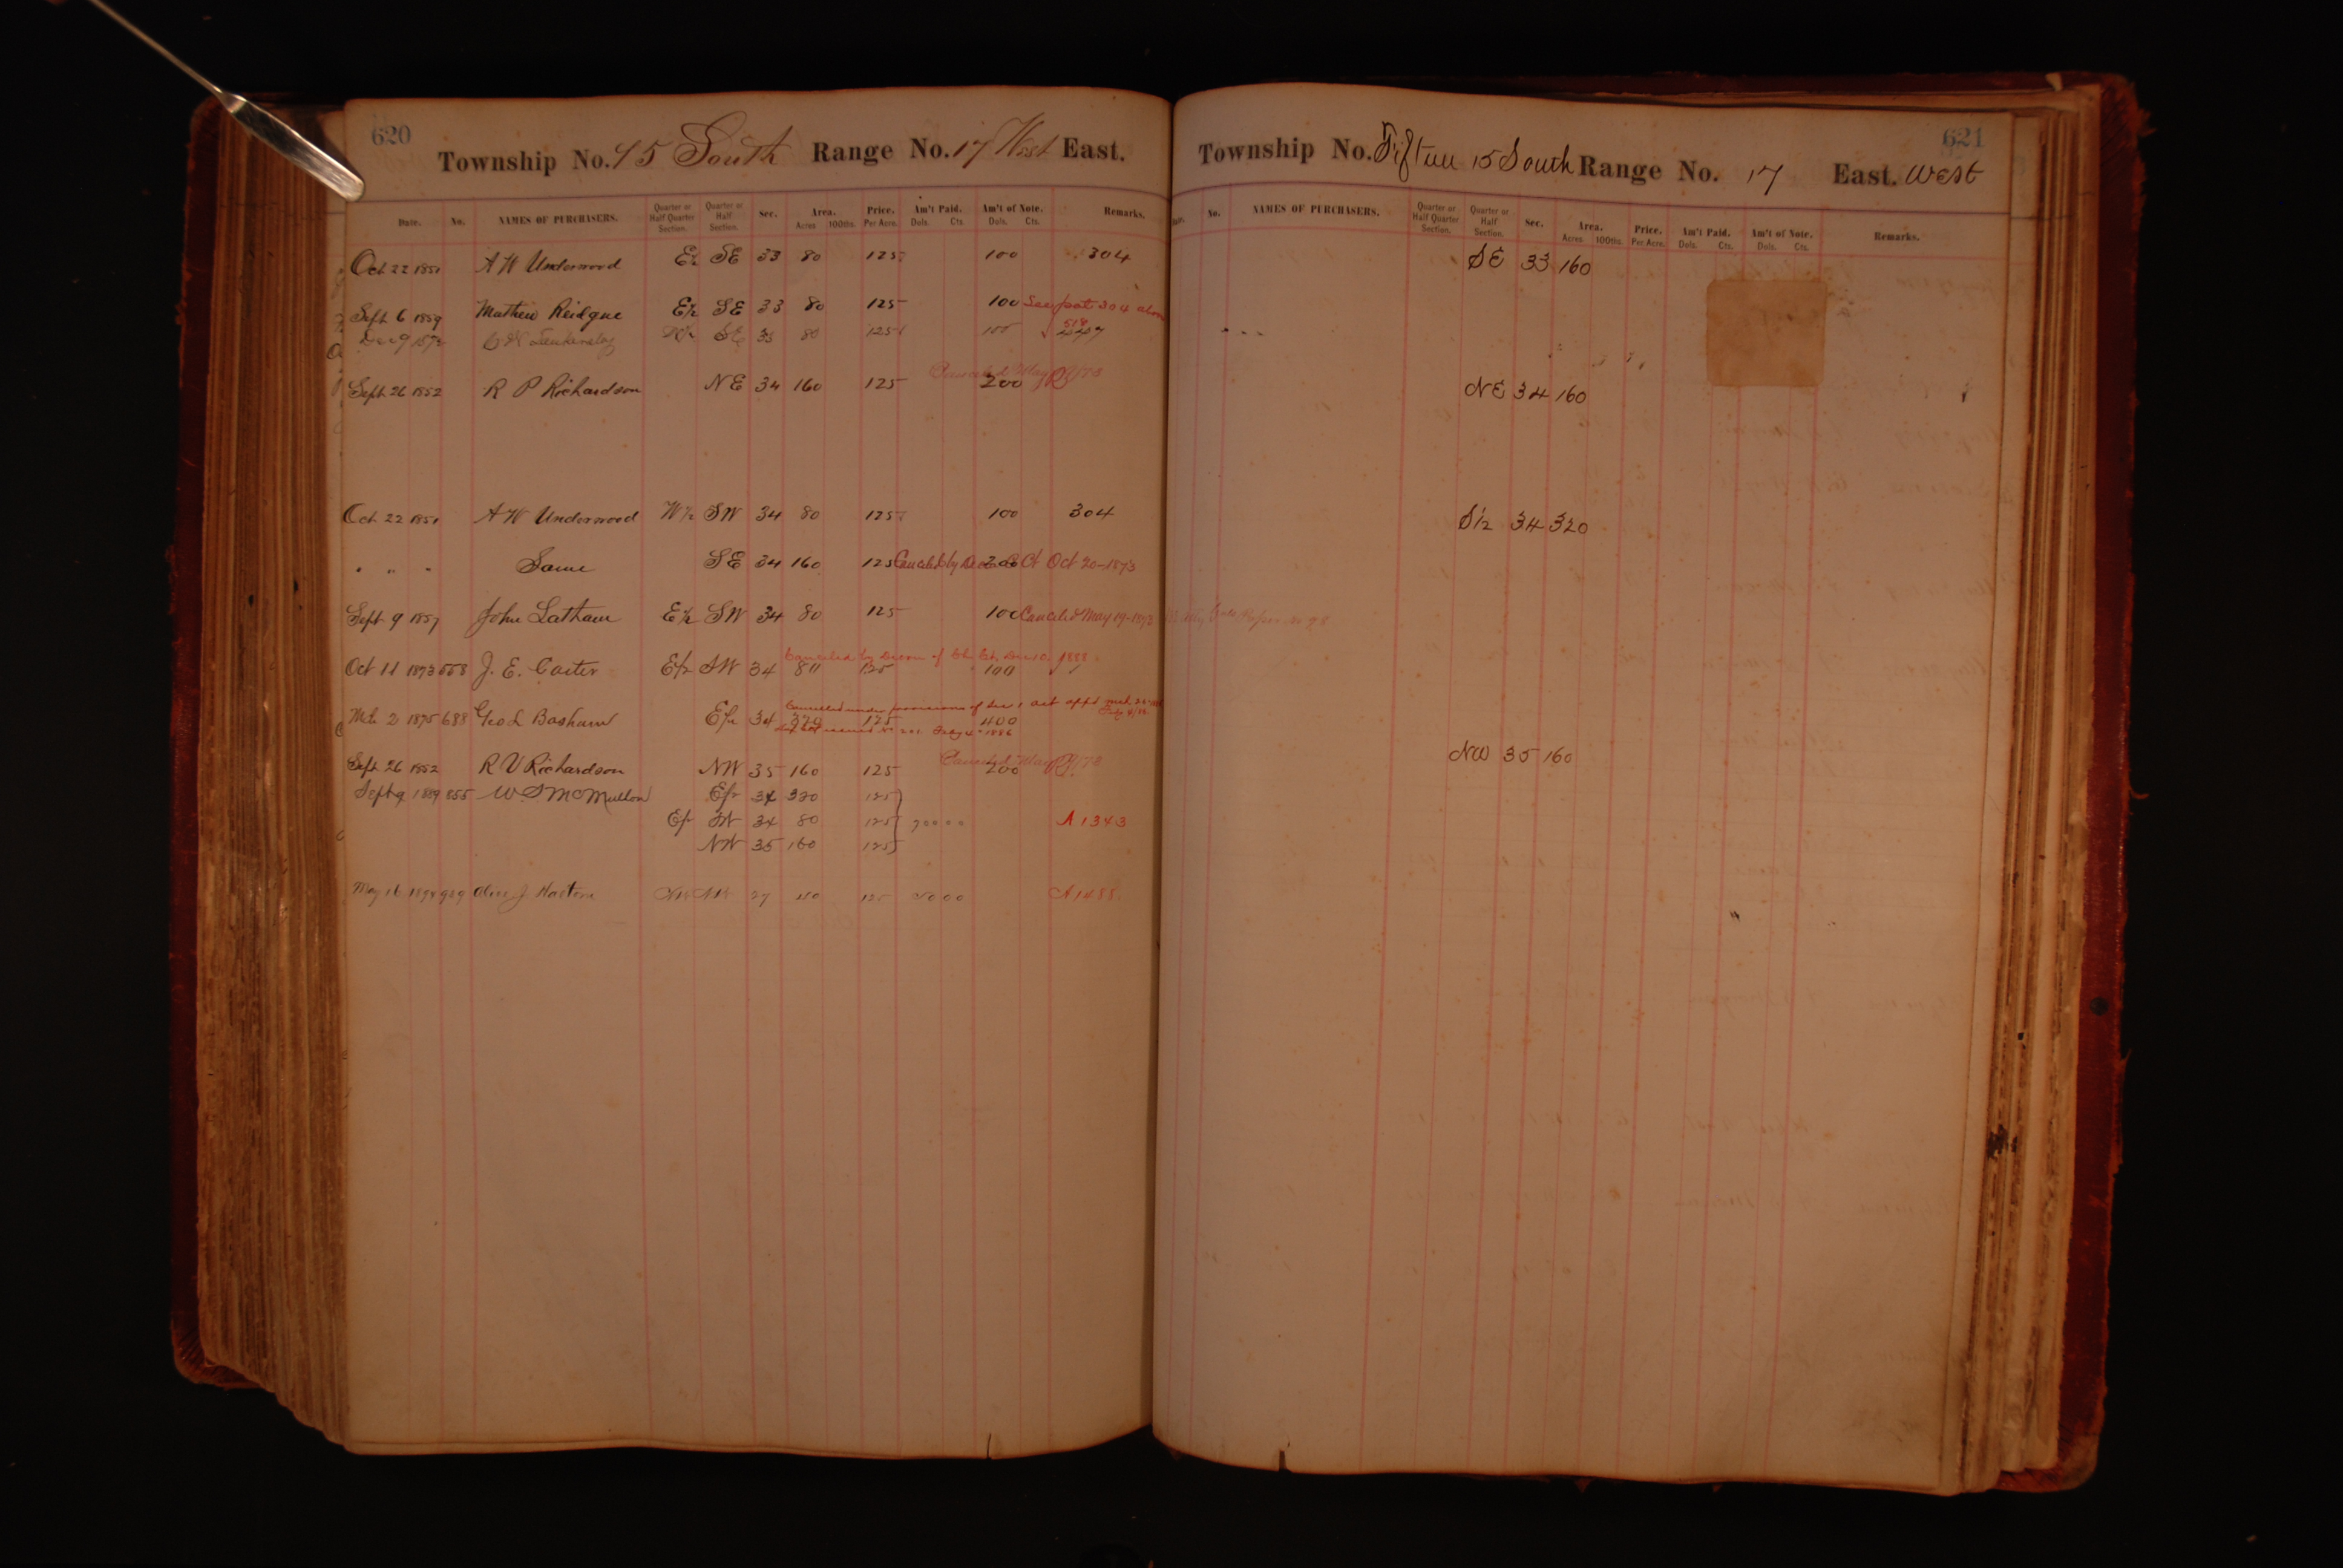 620
Township No. 15 South Range No. 17 West East.
Date. No. NAMES OF PURCHASERS. Quarter or Half Quarter Section. Quarter or Half Section. Sec. Area. Acres 100ths. Price. Per Acre. Am't Paid. Dols. Cts. Am't of Note. Dols. Cts. Remarks.
Oct 22 1851 A W Underwood E½ SE 33 80 125 100 304
Sept 6 1859 Mathew Reidgue E½ SE 33 80 125 100 See pat 304 above
518
Dec 9 1872 33 80 125 100 447
Canceled May 1873
Sept 26 1852 R P Richardson NE 34 160 125 200
Oct 22 1851 A W Underwood W½ SW 34 80 125 100 304
" " " Same SE 34 160 125 Canceled by Dec Ct Oct 20-1873
Sept 9 1857 John Latham E½ SW 34 80 125 100 Canceled May 19-1873
Canceled by Decree of Ch. Ct. Dec 10. 1888
Oct 11 1873 558 J. E. Carter E½ SW 34 80 125 100 ✓
Cancelled under provisions of Sec 1 act appd mch
Mch 2 1875 688 Geo L Basham E½ 34 320 125 400
issued No 201 July 4 1886
Canceled May 1873
Sept 26 1852 R V Richardson NW 35 160 125 200
Sept 9 1889 855 W. S McMullon E½ 34 320 125
E½ SW 34 80 125 70000 A 1343
NW 35 160 125
May 16 1898 989 Olin J Hastone NW NW 27 40 125 5000 A 1488
621
Township No. Fifteen 15 South Range No. 17 East. West
Date. No. NAMES OF PURCHASERS. Quarter or Half Quarter Section. Quarter or Half Section. Sec. Area. Acres 100ths. Price. Per Acre. Am't Paid. Dols. Cts. Am't of Note. Dols. Cts. Remarks.
SE 33 160
NE 34 160
S½ 34 320
NW 35 160